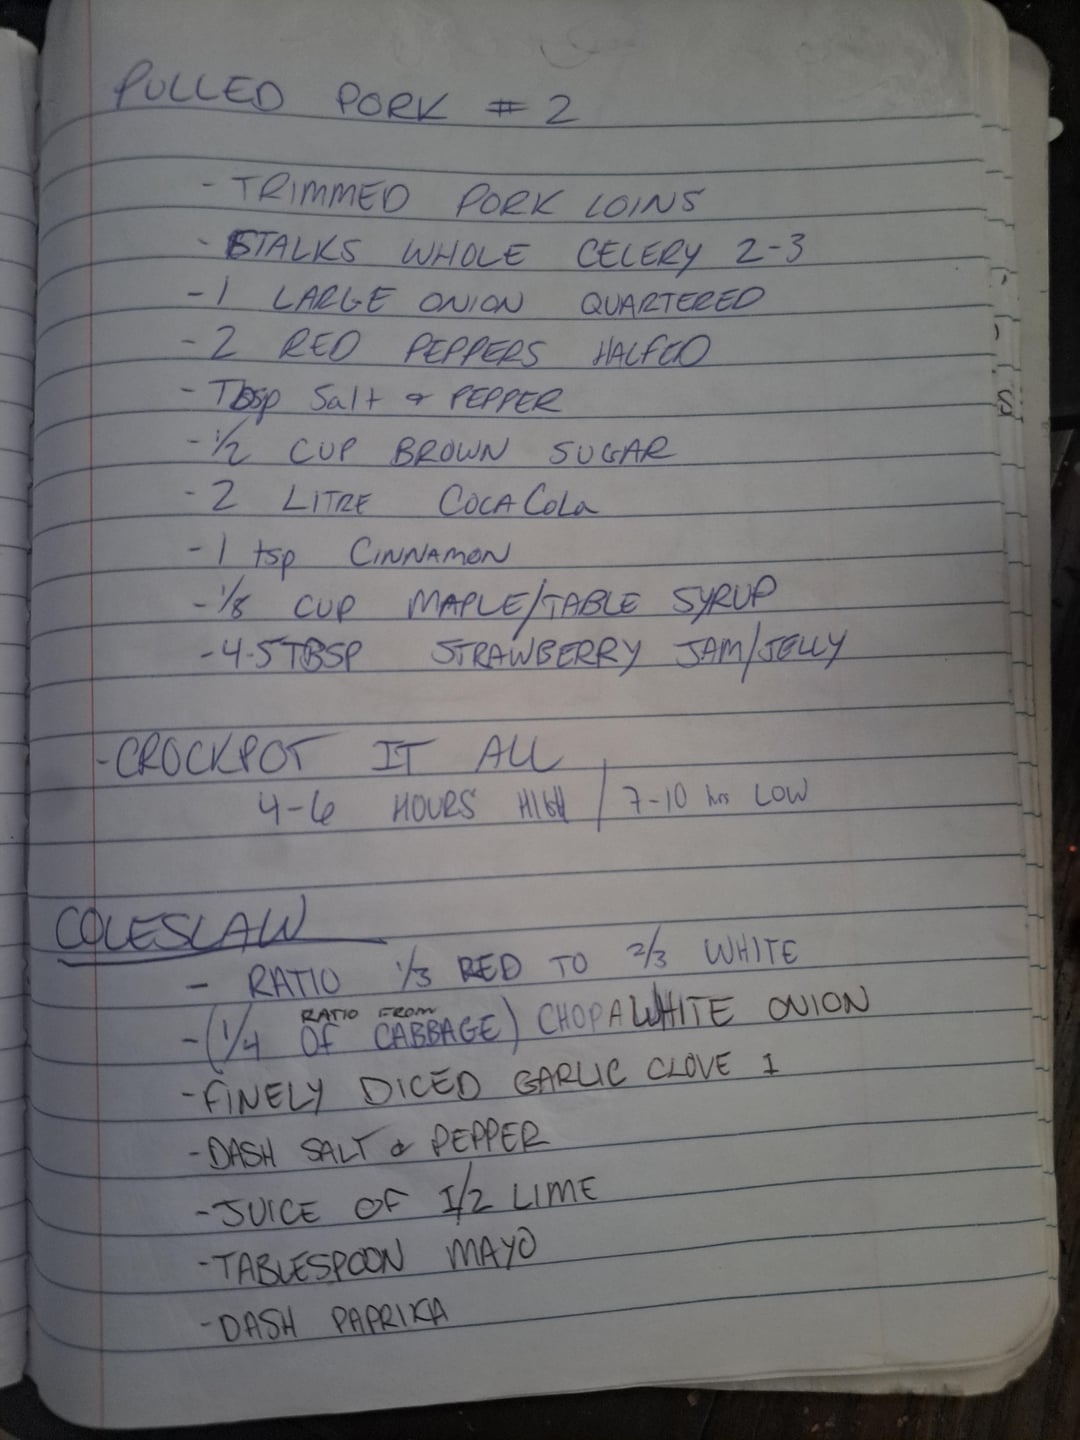 PULLED PORK # 2
- TRIMMED PORK LOINS
- STALKS WHOLE CELERY 2-3
- 1 LARGE ONION QUARTERED
- 2 RED PEPPERS HALFED
- Tbsp Salt & PEPPER
- 1/2 CUP BROWN SUGAR
- 2 LITRE COCA Cola
- 1 tsp CINNAMON
- 1/8 CUP MAPLE/TABLE SYRUP
- 4-5 TBSP STRAWBERRY JAM/JELLY
- CROCKPOT IT ALL
4-6 HOURS HIGH / 7-10 hrs LOW
COLESLAW
- RATIO 1/3 RED TO 2/3 WHITE
RATIO FROM
- (1/4 OF CABBAGE) CHOP A WHITE ONION
- FINELY DICED GARLIC CLOVE 1
- DASH SALT & PEPPER
- JUICE OF 1/2 LIME
- TABLESPOON MAYO
- DASH PAPRIKA